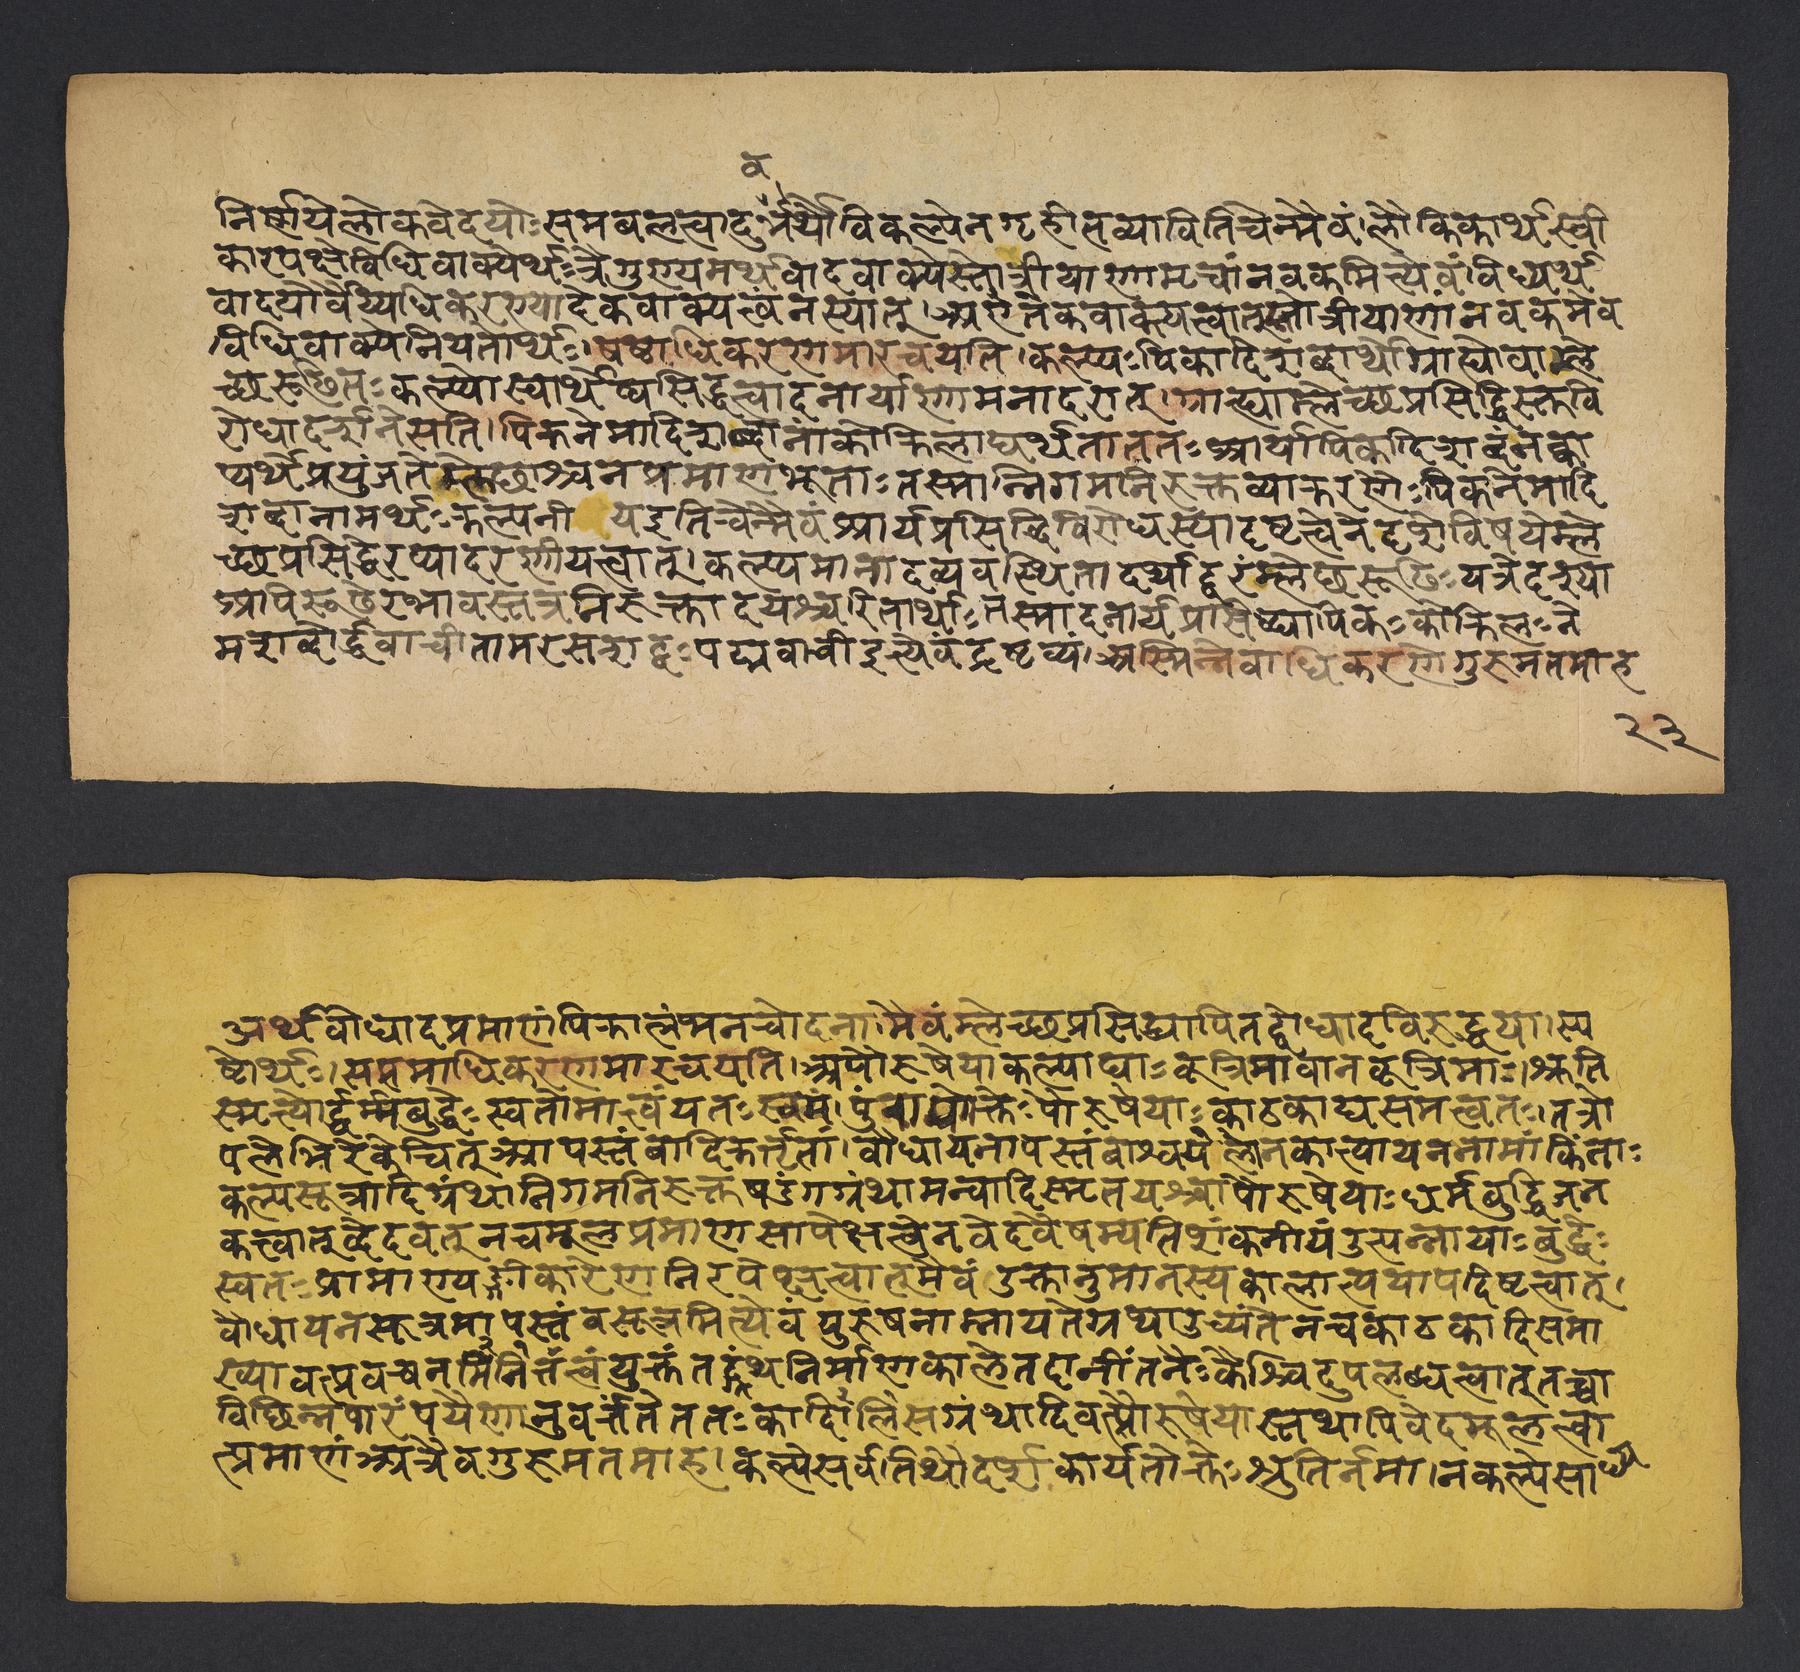 व
निर्ण्णयेलोकवेदयोःसमबलत्वादुभावर्थौविकल्पेनगृहीतव्यावितिचेन्मैवं।लौकिकार्थस्वी
कारपक्षेविधिवाक्येर्थःत्रैगुण्यमर्थवादवाक्येस्तोत्रीयाणामृचांनवकमित्येवं।विध्यर्थ
वादयोर्वैय्यधिकरण्यादेकवाक्यत्वंनस्यात्।अतएकवाक्यत्वात्स्तोत्रीयाणांनवकमेव
विधिवाक्यनियतार्थः।षष्ठाधिकरणमारचयति।कल्प्यःपिकादिशब्दार्थोग्राह्योवाम्ले
च्छरूढितःकल्प्योस्वार्थेष्वसिद्धत्वादनार्याणामनादरात्।ग्राह्याम्लेच्छप्रसिद्धिस्तुवि
रोधादर्शनेसति।पिकनेमादिशब्दानांकोकिलाद्यर्थतांततःआर्यापिकादिशब्दंनक्वा
प्यर्थेप्रयुंजतेम्लेछाश्चनप्रमाणभूताःतस्मान्निगमनिरुक्तव्याकरणैःपिकनेमादि
शब्दानामर्थःकल्पनीयइतिचेन्मैवंआर्यप्रसिद्धिविरोधस्यादृष्टत्वेनेदृशेविषयेम्ले
च्छप्रसिद्धेरप्यादरणीयत्वात्।कल्प्यमानादव्यवस्थितादर्थाद्वरंम्लेछरूढिःयत्रेदृश्या
अपिरूढेरभावस्तत्रनिरुक्तादयश्चरितार्थाःतस्मादनार्यप्रसिद्ध्यापिकःकोकिलःने
मशब्दोर्द्धवाचीतामरसशब्दःपद्मवाचीइत्येवंद्रष्टव्यं।अस्मिन्नेवाधिकरणेगुरुमतमाह
२३
अर्थबोधादप्रमाणंपिकालंभनचोदना।मैवंम्लेच्छप्रसिद्ध्यापितद्बोधादविरुद्धया।स्प
ष्टोर्थः।सप्तमाधिकरणमारचयति।अपौरुषेयाकल्पाद्याःकृत्रिमावानकृत्रिमाः।श्रुति
स्मृत्योर्द्धर्म्मबुद्धेःस्वतोमात्वंयतःसमं।पुंनाम्नोक्तेःपौरुषेयाःकाठकाद्यसमत्वतः।तत्रो
पलेभिरेकेचित्आपस्तंबादिकर्तृतां।बौधायनापस्तंबाश्वलायनकात्यायननामांकिताः
कल्पसूत्रादिग्रंथानिगमनिरुक्तषडंगग्रंथामन्वादिस्मृतयश्चापौरुषेयाःधर्मबुद्धिजन
कत्वात्वेदवत्नचमूलप्रमाणसापेक्षत्वेनवेदवैषम्यतिशंकनीयंउत्पन्नायाःबुद्धेः
स्वतःप्रामाण्यङ्गीकारेणनिरपेक्षत्वात्मैवंउक्तानुमानस्यकालात्ययापदिष्टत्वात्।
बौधायनसूत्रमापस्तंबसूत्रमित्येवंपुरुषनाम्नायतेग्रंथाउच्यंतेनचकाठकादिसमा
ख्यावत्प्रवचननिमित्तत्वंयुक्तंतद्ग्रंथनिर्माणकालेतदानींतनैःकैश्चिदुपलब्धत्वात्तच्चा
विछिन्नपारंपर्येणानुवर्त्ततेततःकालिदासग्रंथादिवत्पौरुषेयास्तथापिवेदमूलत्वा
त्प्रमाणंअत्रैवगुरुमतमाह।कल्पेसर्वतिथौदर्शकार्यतोक्तेःश्रुतिर्नमा।नकल्पेसार्थ